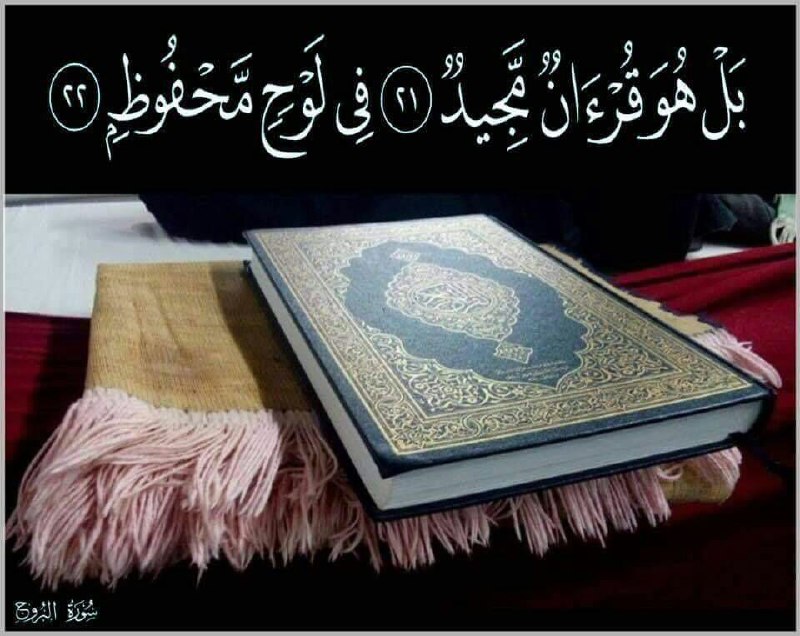 بَلْ هُوَ قُرْءَانٌ مَّجِيدٌ ٢١ فِى لَوْحٍ مَّحْفُوظٍ ٢٢
سُورَةُ البُرُوجِ